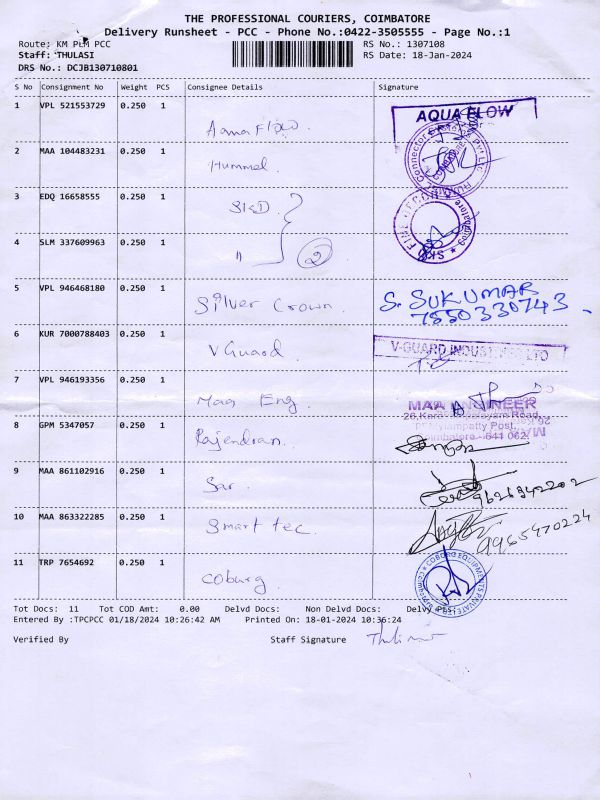 THE PROFESSIONAL COURIERS, COIMBATORE
Delivery Runsheet - PCC - Phone No.:0422-3505555 - Page No.:1
Route: KM PLM PCC RS No.: 1307108
Staff: THULASI RS Date: 18-Jan-2024
DRS No.: DCJB130710801
S No Consignment No Weight PCS Consignee Details Signature
1 VPL 521553729 0.250 1 Aqua Flow. AQUA FLOW
2 MAA 104483231 0.250 1 Hummel.
3 EDQ 16658555 0.250 1 SKD
4 SLM 337609963 0.250 1 " 2
5 VPL 946468180 0.250 1 Silver Crown. S. SUKUMAR
7550330743
6 KUR 7000788403 0.250 1 V Guard V-GUARD INDUSTRIES LTD
7 VPL 946193356 0.250 1 Maa Eng. MAA ENGINEER
Road,
8 GPM 5347057 0.250 1 Rajendran. Post,
Coimbatore - 641 062.
9 MAA 861102916 0.250 1 Sar. 9626342202
10 MAA 863322285 0.250 1 Smart tec. 9965470224
11 TRP 7654692 0.250 1 Coburg. COBURG EQUIPMENTS PRIVATE
Tot Docs: 11 Tot COD Amt: 0.00 Delvd Docs: Non Delvd Docs: Delvy
Entered By :TPCPCC 01/18/2024 10:26:42 AM Printed On: 18-01-2024 10:36:24
Verified By Staff Signature